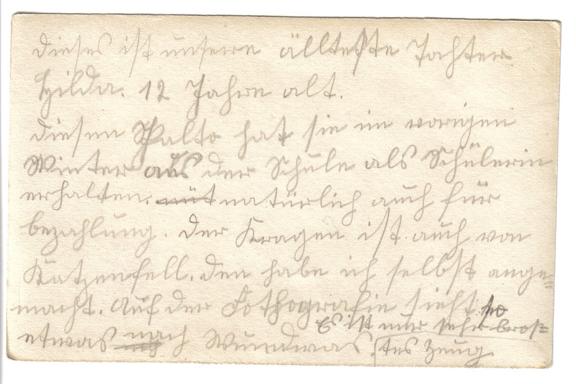 dieses ist unsere älltesste Tachter
Hilda. 12 Jahre alt.
diesen Palto hat sie im vorigen
Winter aus der Schule als Schülerin
erhalten. natürlich auch für
bezahlung. der Kragen ist auch von
Katzenfell. den habe ich selbst ange=
macht. Auf der Fothografie sieht so
etwas nach Wundwas
Es ist nur sehr
tes Zeug